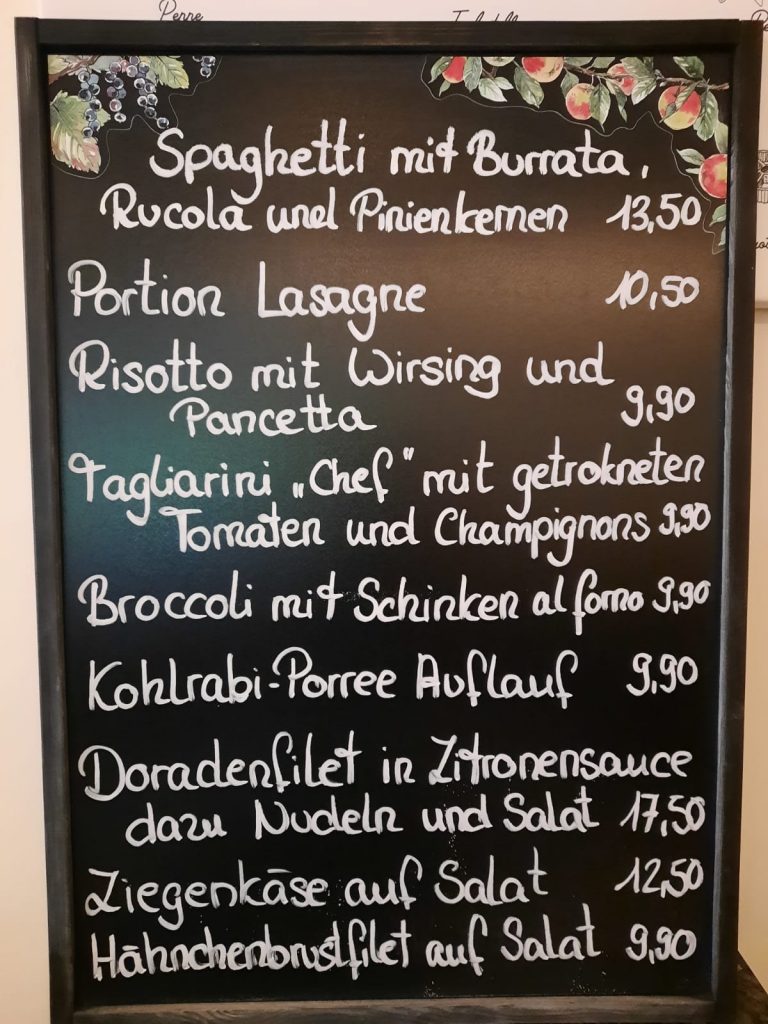 Penne
Spaghetti mit Burrata,
Rucola und Pinienkernen 13,50
Portion Lasagne 10,50
Risotto mit Wirsing und
Pancetta 9,90
Tagliarini „Chef" mit getrokneten
Tomaten und Champignons 9,90
Broccoli mit Schinken al forno 9,90
Kohlrabi-Porree Auflauf 9,90
Doradenfilet in Zitronensauce
dazu Nudeln und Salat 17,50
Ziegenkäse auf Salat 12,50
Hähnchenbrustfilet auf Salat 9,90